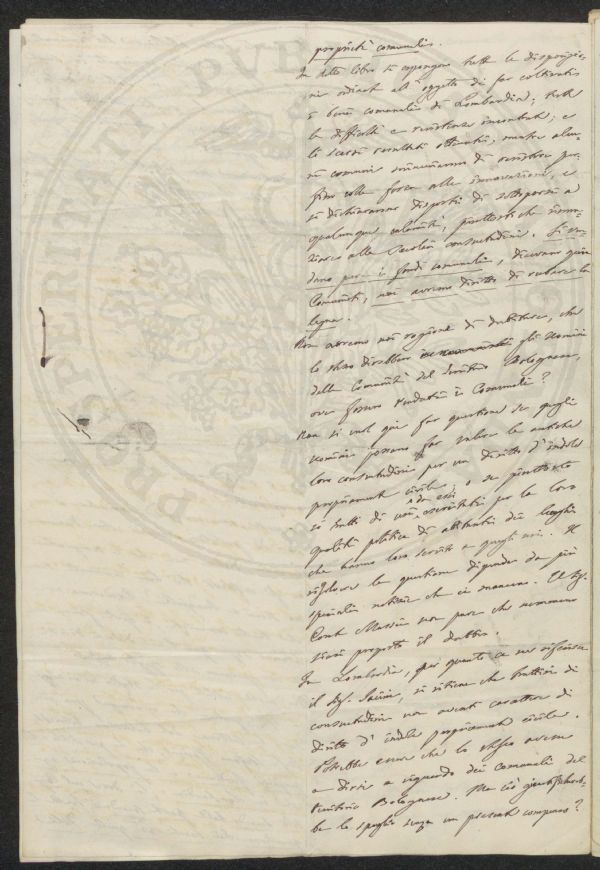 proprietà comunali.
In detto libro si espongono tutte le disposizio-
ni ordinate all'oggetto di far coltivare
i beni comunali di Lombardia; tutte
le difficoltà e resistenze incontrate; e
li scarsi resultati ottenuti; mentre alcu-
ni comuni minacciarono di resistere per-
fino colla forza alle innovazioni, e
si dichiararono disposti di sottoporsi a
qualunque calamità, piuttosto che rinun-
ziare alle secolari consuetudini. Si ven-
dano pure i fondi comunali, dicevano quei
Comunisti, noi avremo diritto di rubare la
legna.
Non avremo noi ragione di dubitare, che
lo stesso direbbero gli uomini
delle Comunità del territorio Bolognese,
ove fossero venduti i Comunali?
Non si vuol qui far questione se quegli
uomini possano far valere le antiche
loro consuetudini per un diritto d'indole
propriamente civile; o se piuttosto
si tratti di usi da essi esercitati per la loro
qualità politica di abitanti dei luoghi
che hanno loro servito a quegli usi. Il
risolvere la questione dipende da più
speciali notizie che ci mancano. Il Sig.
Conte Massei non pare che nemmeno
siasi proposto il dubbio.
In Lombardia, per quanto ce ne riferisce
il Sig. Jacini, si ritiene che trattisi di
consuetudini non aventi carattere di
diritto d'indole propriamente civile.
Potrebbe essere che lo stesso avesse
a dirsi a riguardo dei comunali del
territorio Bolognese. Ma ciò giustifichereb-
be lo spoglio senza un presente compenso?
PVBLI